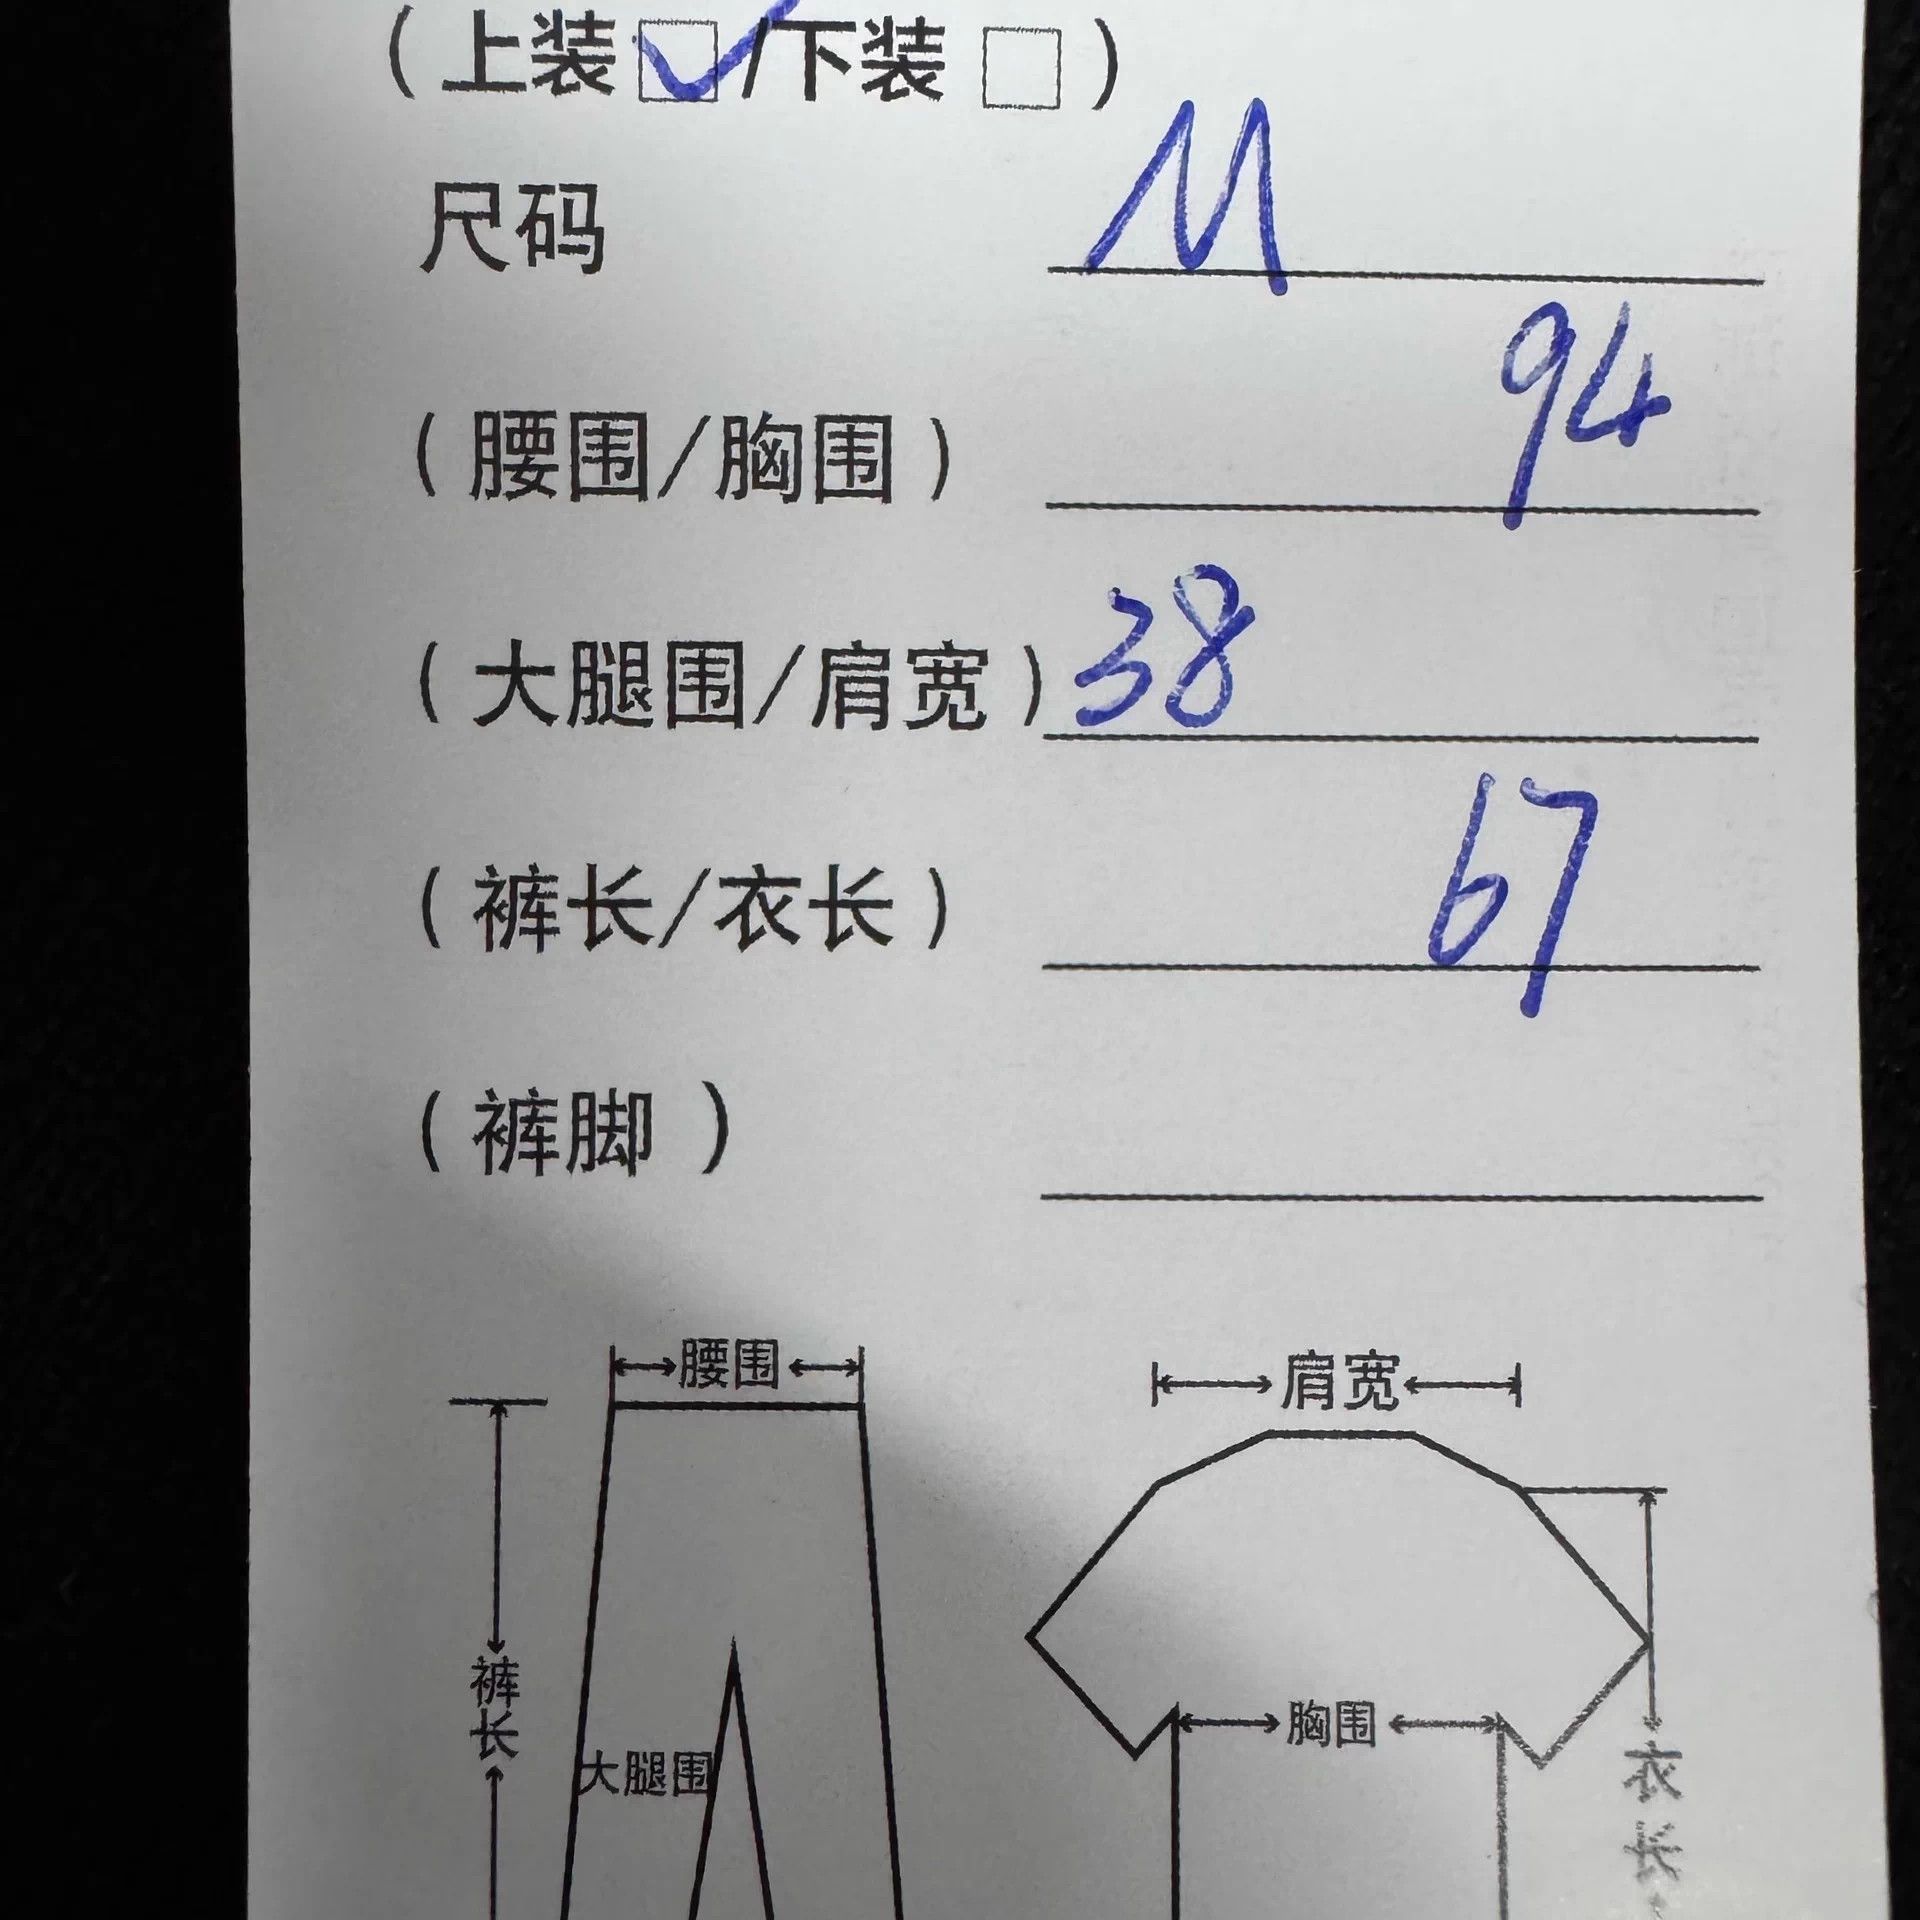 (上装☑/下装□)
尺码 M
(腰围/胸围) 94
(大腿围/肩宽) 38
(裤长/衣长) 67
(裤脚)
腰围
肩宽
裤长
大腿围
胸围
衣长